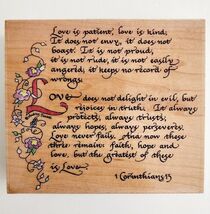 Love is patient, love is kind;
It does not envy, it does not
boast. It is not proud,
it is not rude, it is not easily
angered; it keeps no record of
wrongs.
LOVE does not delight in evil, but
rejoices in truth. It always
protects, always trusts;
always hopes, always perseveres.
Love never fails. And now these
three remain: faith, hope and
love, but the greatest of these
is Love.
1 Corinthians 13